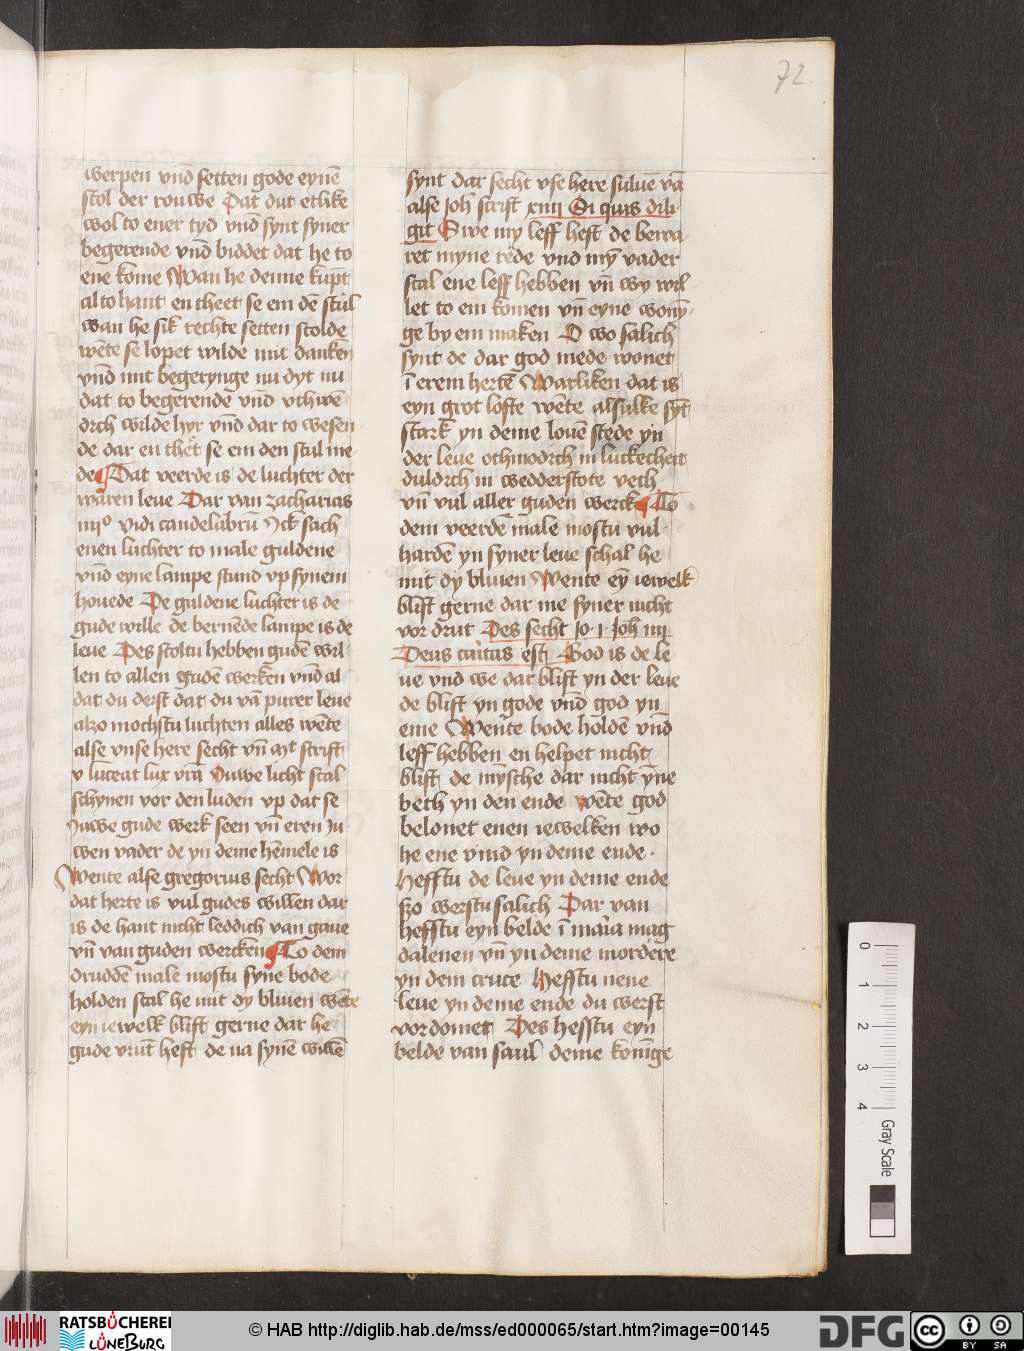 72
werpen vnd̄ setten gode eynē
stol der rouwe Dat dut etlike
wol to ener tyd vnd̄ synt syner
begerende vnd̄ biddet dat he to
ene kome Wan he denne kūpt
al to hant en theet se em dē stul
wan he sik rechte setten scolde
wēte se lopet wilde mit dankēn
vnd̄ mit begerynge nu dyt nu
dat to begerende vnd̄ vthwē
drch wilde hyr vnd̄ dar to wesen
de dar en thet se em den stul me
de ¶ Dat veerde is de luchter der
waren leue Dar van zacharias
iiijº vidi candelabrū Ick sach
enen luchter to male guldene
vnd̄ eyne lampe stund vp synem
houede De guldene luchter is de
gude wille de bernēde lampe is de
leue Des scoltu hebben gudē wil
len to allen gudēn werkēn vnd̄ al
dat du derst dat du vā purer leue
alzo mochstu luchten alles wēte
alse vnse here secht vn̄ mt scrift
v luceat lux vrā Iuwe licht scal
schynen vor den luden vp dat se
Iuwe gude werk seen vn̄ eren Iu
wen vader de yn deme hēmele is
Wente alse gregorius secht Wor
dat herte is vul gudes willen dar
is de hant nicht leddich van gaue
vn̄ van guden wercken ¶ To dem
druddē male mostu syne bode
holden scal he mit dy bliuen wēte
eyn iewelk blift gerne dat he
gude vrūt heft de na synē willē
synt dar secht vse here suluē vā
alse Joh̄ scrift xiiij Si quis dili
git Swe my leff heft de bewa
ret myne rede vnd my vader
scal ene leff hebben vn̄ wy wil
let to em komen vn̄ eyne wony
ge by em maken O wo salich
synt de dar god mede wonet
ī erem hertē Warliken dat is
eyn grot lofte wēte alsulke sȳt
stark yn deme louē stede yn
der leue othmodich in luckechett
duldich in wedderstote vech
vn̄ vul aller guden werck ¶ To
dem veerdē male mostu vul
hardē yn syner leue schal he
mit dy bliuen Wente eȳ iewelk
blift gerne dar me syner nicht
vor drut Des secht Jo · i · Joh̄ iiij
Deus caritas est God is de le
ue vnd we dar blift yn der leue
de blift yn gode vnd̄ god yn
eme Wente bode holdē vnd̄
leff hebben en helpet nicht
blift de mȳsche dar nicht yn̄e
beth yn den ende wēte god
belonet enen iewelken wo
he ene vind yn deme ende ·
Hefftu de leue yn deme ende
szo werstu salich Dar van
hefftu eyn belde ī maria mag
dalenen vn̄ yn deme mordere
yn dem cruce Hefftu nene
leue yn deme ende du werst
vordomet Des hefftu eyn
belde van saul deme kōnīge
0
1
2
3
4
Gray Scale
RATSBÜCHEREI
LÜNEBURG
© HAB http://diglib.hab.de/mss/ed000065/start.htm?image=00145
DFG
cc
BY SA